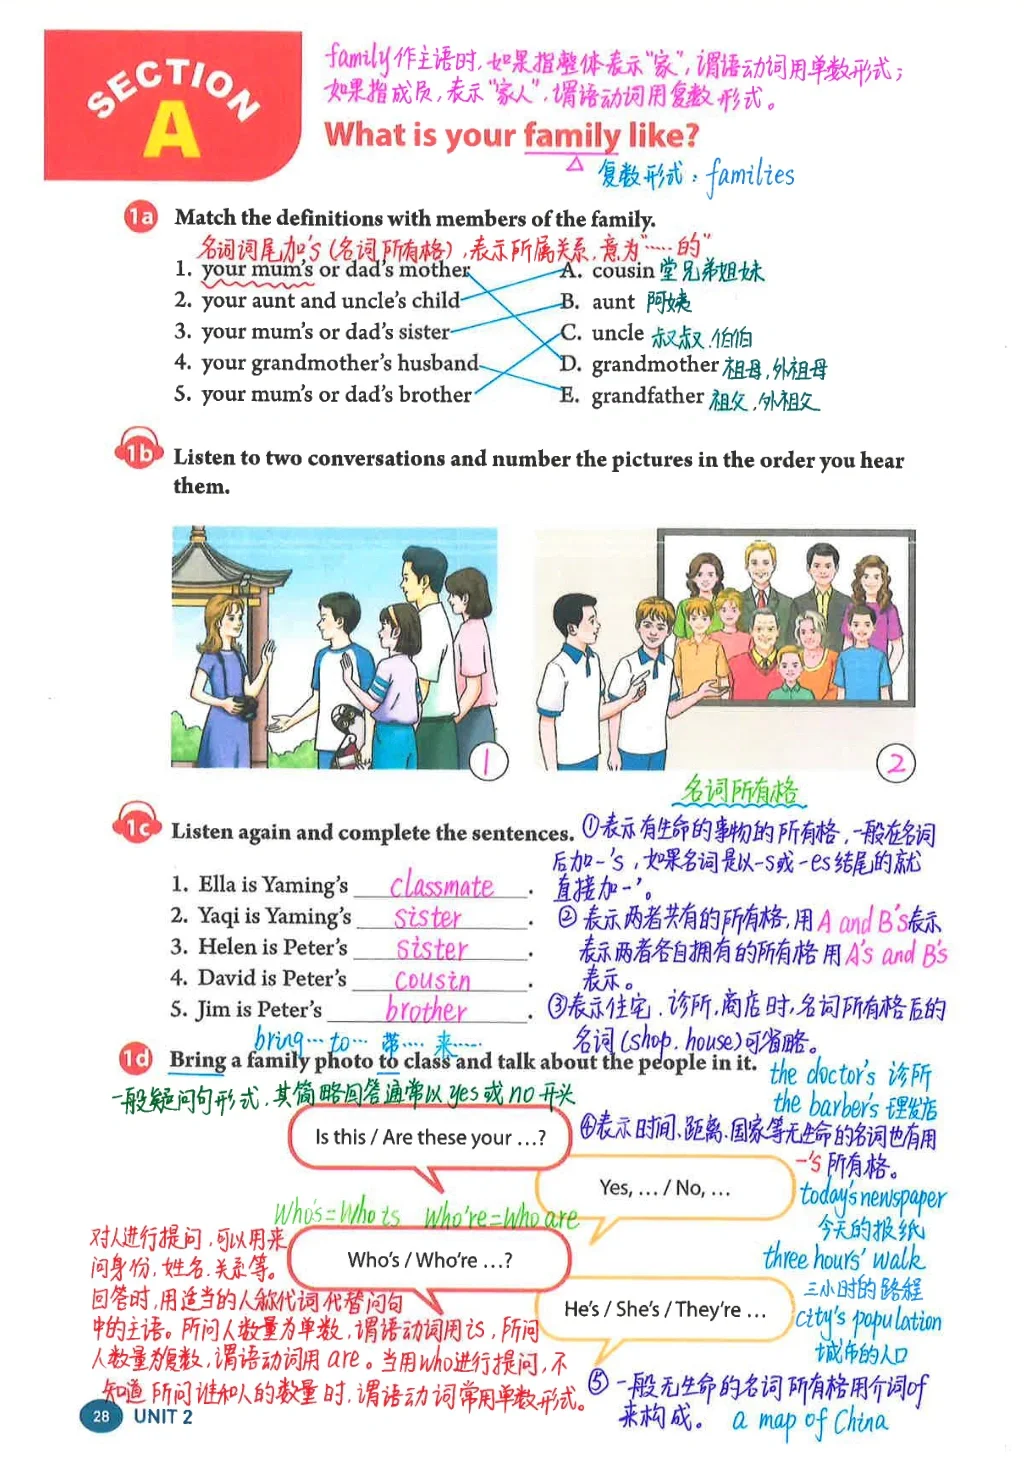 SECTION
A
family作主语时,如果指整体表示“家”,谓语动词用单数形式;
如果指成员,表示“家人”,谓语动词用复数形式。
What is your family like?
复数形式:families
1a Match the definitions with members of the family.
名词词尾加's(名词所有格),表示所属关系,意为“……的”
1. your mum's or dad's mother
2. your aunt and uncle's child
3. your mum's or dad's sister
4. your grandmother's husband
5. your mum's or dad's brother
A. cousin 堂兄弟姐妹
B. aunt 阿姨
C. uncle 叔叔,伯伯
D. grandmother 祖母,外祖母
E. grandfather 祖父,外祖父
1b Listen to two conversations and number the pictures in the order you hear
them.
1
2
名词所有格
1c Listen again and complete the sentences.
1. Ella is Yaming's classmate.
2. Yaqi is Yaming's sister.
3. Helen is Peter's sister.
4. David is Peter's cousin.
5. Jim is Peter's brother.
①表示有生命的事物的所有格,一般在名词
后加-'s,如果名词是以-s或-es结尾的就
直接加-'。
②表示两者共有的所有格,用A and B's表示
表示两者各自拥有的所有格用A's and B's
表示。
③表示住宅、诊所,商店时,名词所有格后的
名词(shop、house)可省略。
bring…to… 带……来……
1d Bring a family photo to class and talk about the people in it.
the doctor's 诊所
the barber's 理发店
一般疑问句形式,其简略回答通常以yes或no开头
Is this / Are these your …?
④表示时间、距离、国家等无生命的名词也有用
-'s所有格。
Yes, … / No, …
today's newspaper
今天的报纸
three hours' walk
三小时的路程
city's population
城市的人口
Who's=Who is Who're=Who are
Who's / Who're …?
He's / She's / They're …
对人进行提问,可以用来
问身份,姓名、关系等。
回答时,用适当的人称代词代替问句
中的主语。所问人数量为单数,谓语动词用is,所问
人数量为复数,谓语动词用are。当用who进行提问,不
知道所问谁和人的数量时,谓语动词常用单数形式。
⑤一般无生命的名词所有格用介词of
来构成。 a map of China
28 UNIT 2